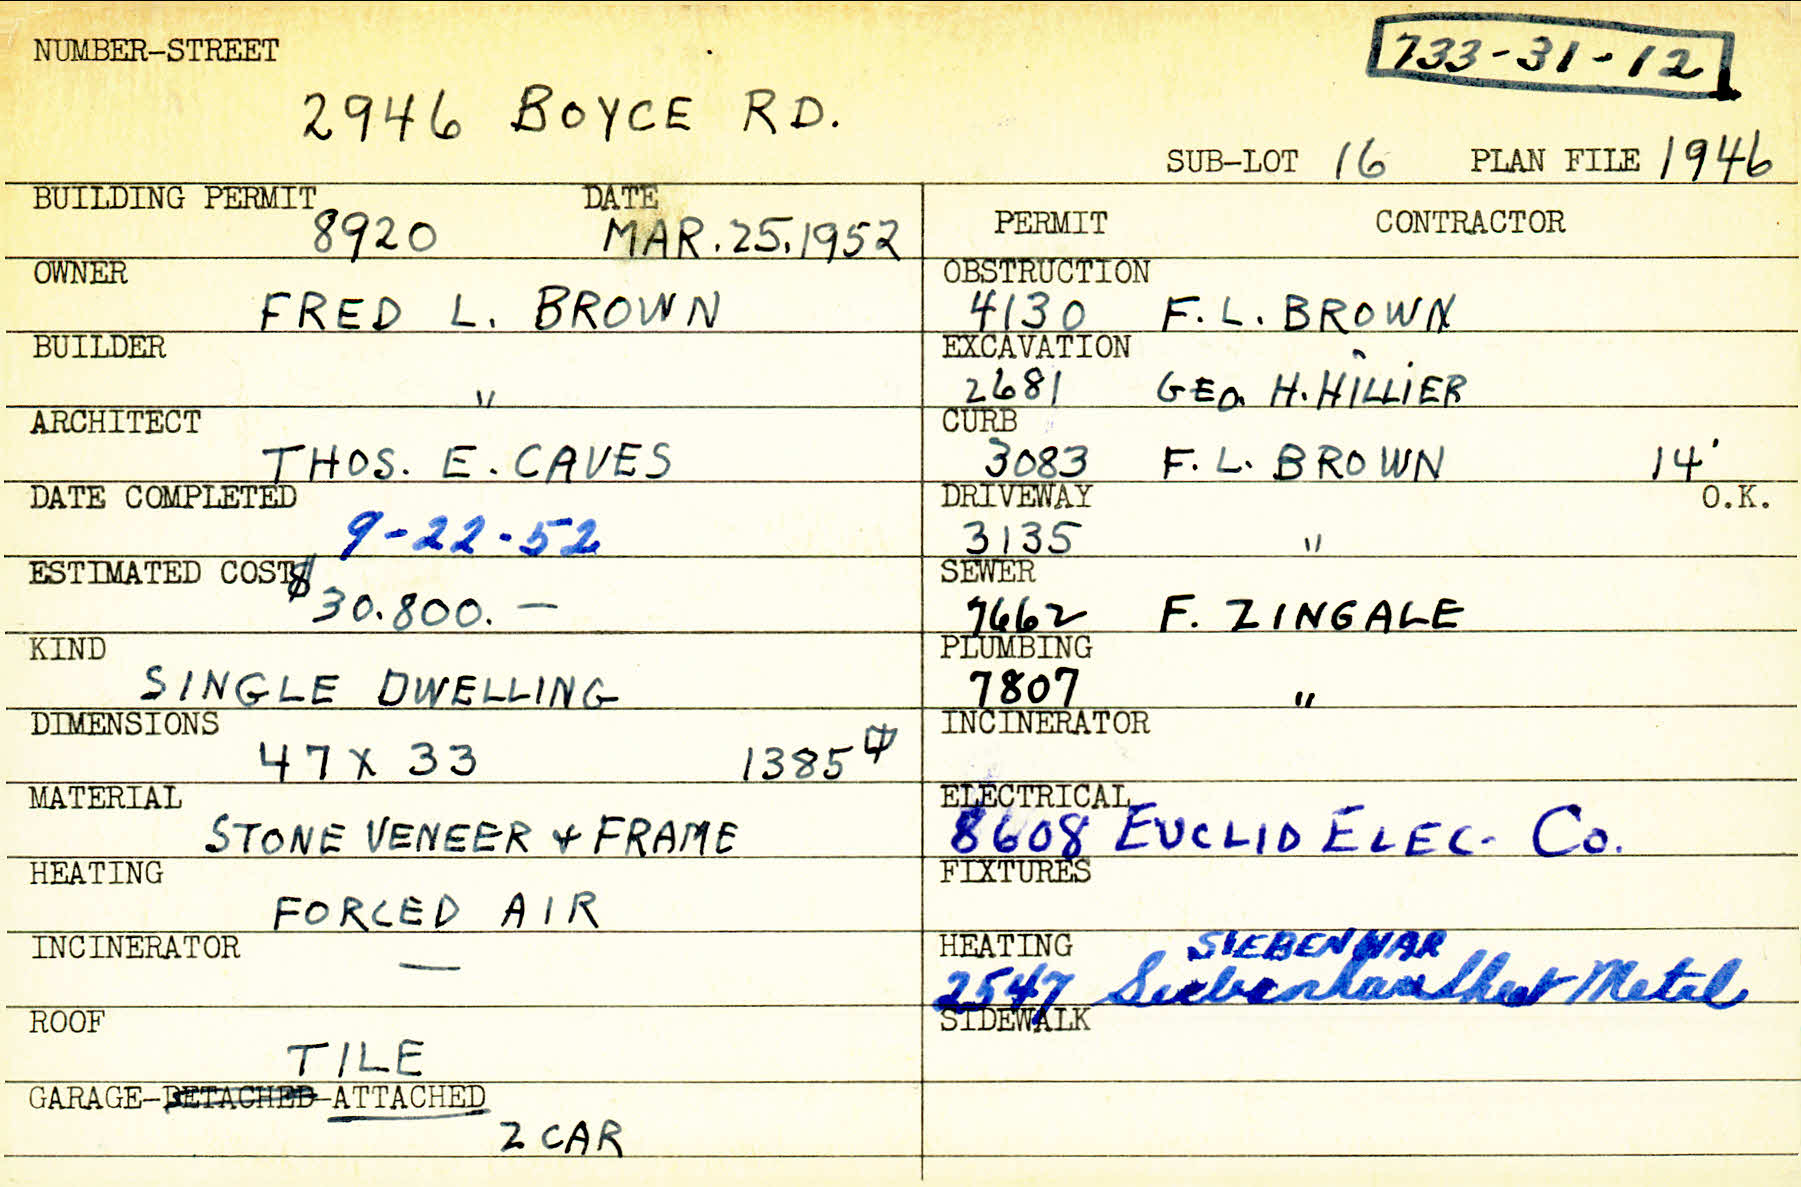 NUMBER-STREET
733-31-12
2946 BOYCE RD.
SUB-LOT 16 PLAN FILE 1946
BUILDING PERMIT DATE
8920 MAR. 25, 1952
OWNER
FRED L. BROWN
BUILDER
"
ARCHITECT
THOS. E. CAVES
DATE COMPLETED
9-22-52
ESTIMATED COST
$30.800. —
KIND
SINGLE DWELLING
DIMENSIONS
47 X 33 1385
MATERIAL
STONE VENEER + FRAME
HEATING
FORCED AIR
INCINERATOR
—
ROOF
TILE
GARAGE-DETACHED-ATTACHED
2 CAR
PERMIT CONTRACTOR
OBSTRUCTION
4130 F. L. BROWN
EXCAVATION
2681 GEO. H. HILLIER
CURB
3083 F. L. BROWN 14'
DRIVEWAY O.K.
3135 "
SEWER
7662 F. ZINGALE
PLUMBING
7807 "
INCINERATOR
ELECTRICAL
8608 EUCLID ELEC. Co.
FIXTURES
HEATING SIEBENHAR
2547 Siebenhar Sheet Metal
SIDEWALK